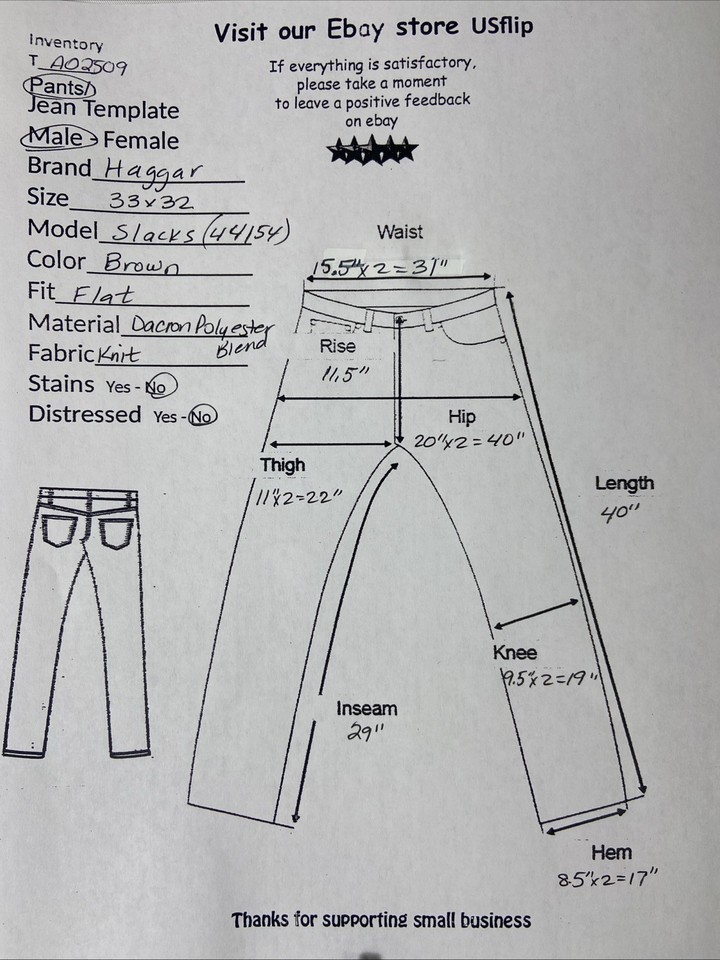 Visit our Ebay store USflip
Inventory
T A02509
Pants/
Jean Template
Male - Female
Brand Haggar
Size 33x32
Model Slacks (44154)
Color Brown
Fit Flat
Material Dacron Polyester
Blend
Fabric Knit
Stains Yes - No
Distressed Yes - No
If everything is satisfactory,
please take a moment
to leave a positive feedback
on ebay
Waist
15.5"x2=31"
Rise
11.5"
Hip
20"x2=40"
Thigh
11"x2=22"
Length
40"
Knee
9.5"x2=19"
Inseam
29"
Hem
8.5"x2=17"
Thanks for supporting small business